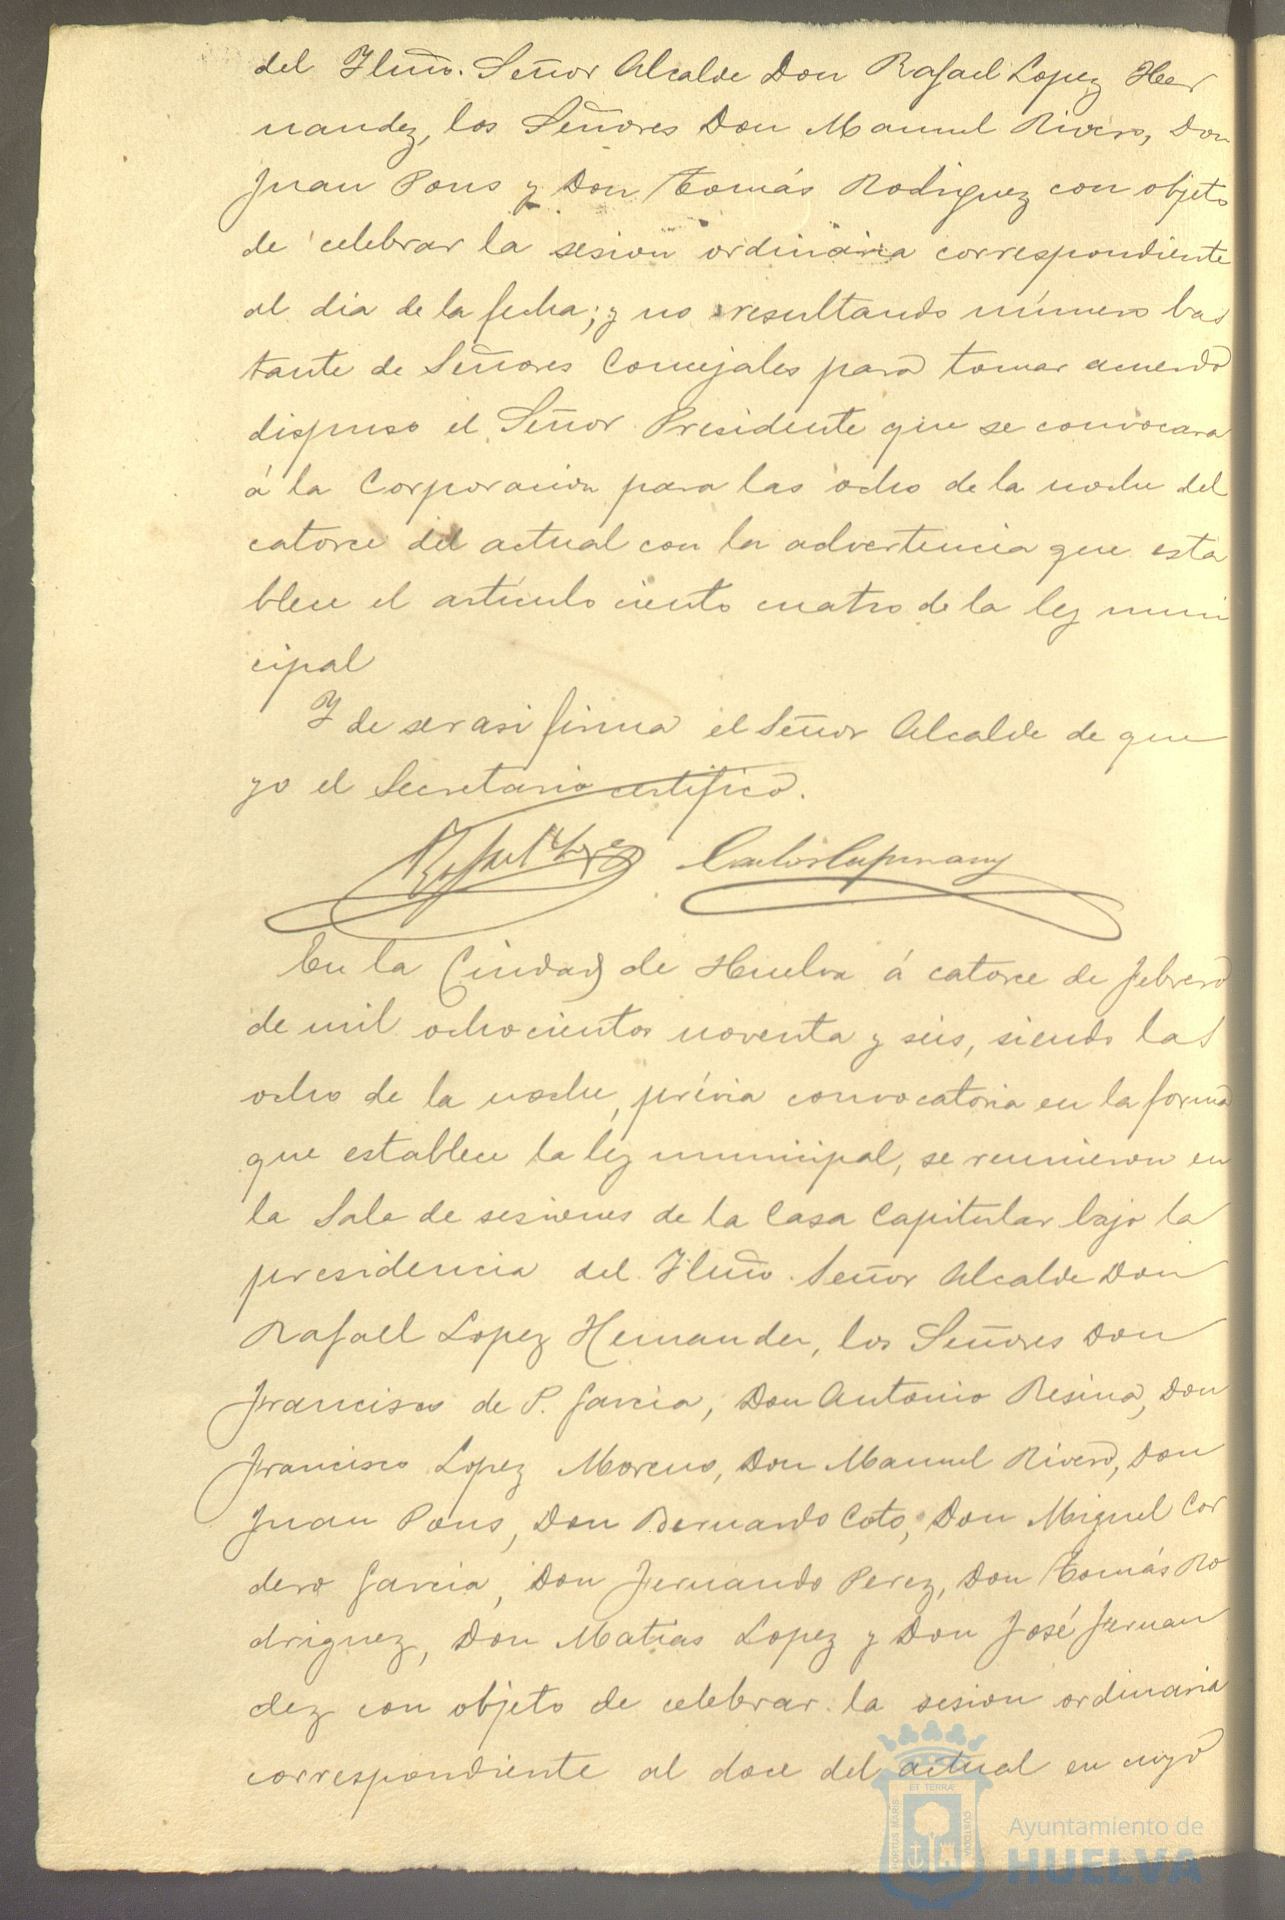 del Ylmo. Señor Alcalde Don Rafael Lopez Her
nandez, los Señores Don Manuel Rivero, Don
Juan Pons y Don Tomás Rodriguez con objeto
de celebrar la sesion ordinaria correspondiente
al dia de la fecha; y no resultando número bas
tante de Señores Concejales para tomar acuerdo
dispuso el Señor Presidente que se convocara
á la Corporacion para las ocho de la noche del
catorce del actual con la advertencia que esta
blece el artículo ciento cuatro de la ley muni
cipal
Y de ser asi firma el Señor Alcalde de que
yo el Secretario certifico.
En la Ciudad de Huelva á catorce de febrero
de mil ochocientos noventa y seis, siendo las
ocho de la noche, prévia convocatoria en la forma
que establece la ley municipal, se reunieron en
la Sala de sesiones de la Casa Capitular bajo la
presidencia del Ylmo. Señor Alcalde Don
Rafael Lopez Hernandez, los Señores Don
Francisco de P. Garcia, Don Antonio Resina, Don
Francisco Lopez Moreno, Don Manuel Rivero, Don
Juan Pons, Don Bernardo Coto, Don Miguel Cor
dero Garcia, Don Fernando Perez, Don Tomás Ro
driguez, Don Matias Lopez y Don José Fernan
dez con objeto de celebrar la sesion ordinaria
correspondiente al doce del actual en cuyo
PORTUS MARIS ET TERRÆ CUSTODIA
Ayuntamiento de
HUELVA